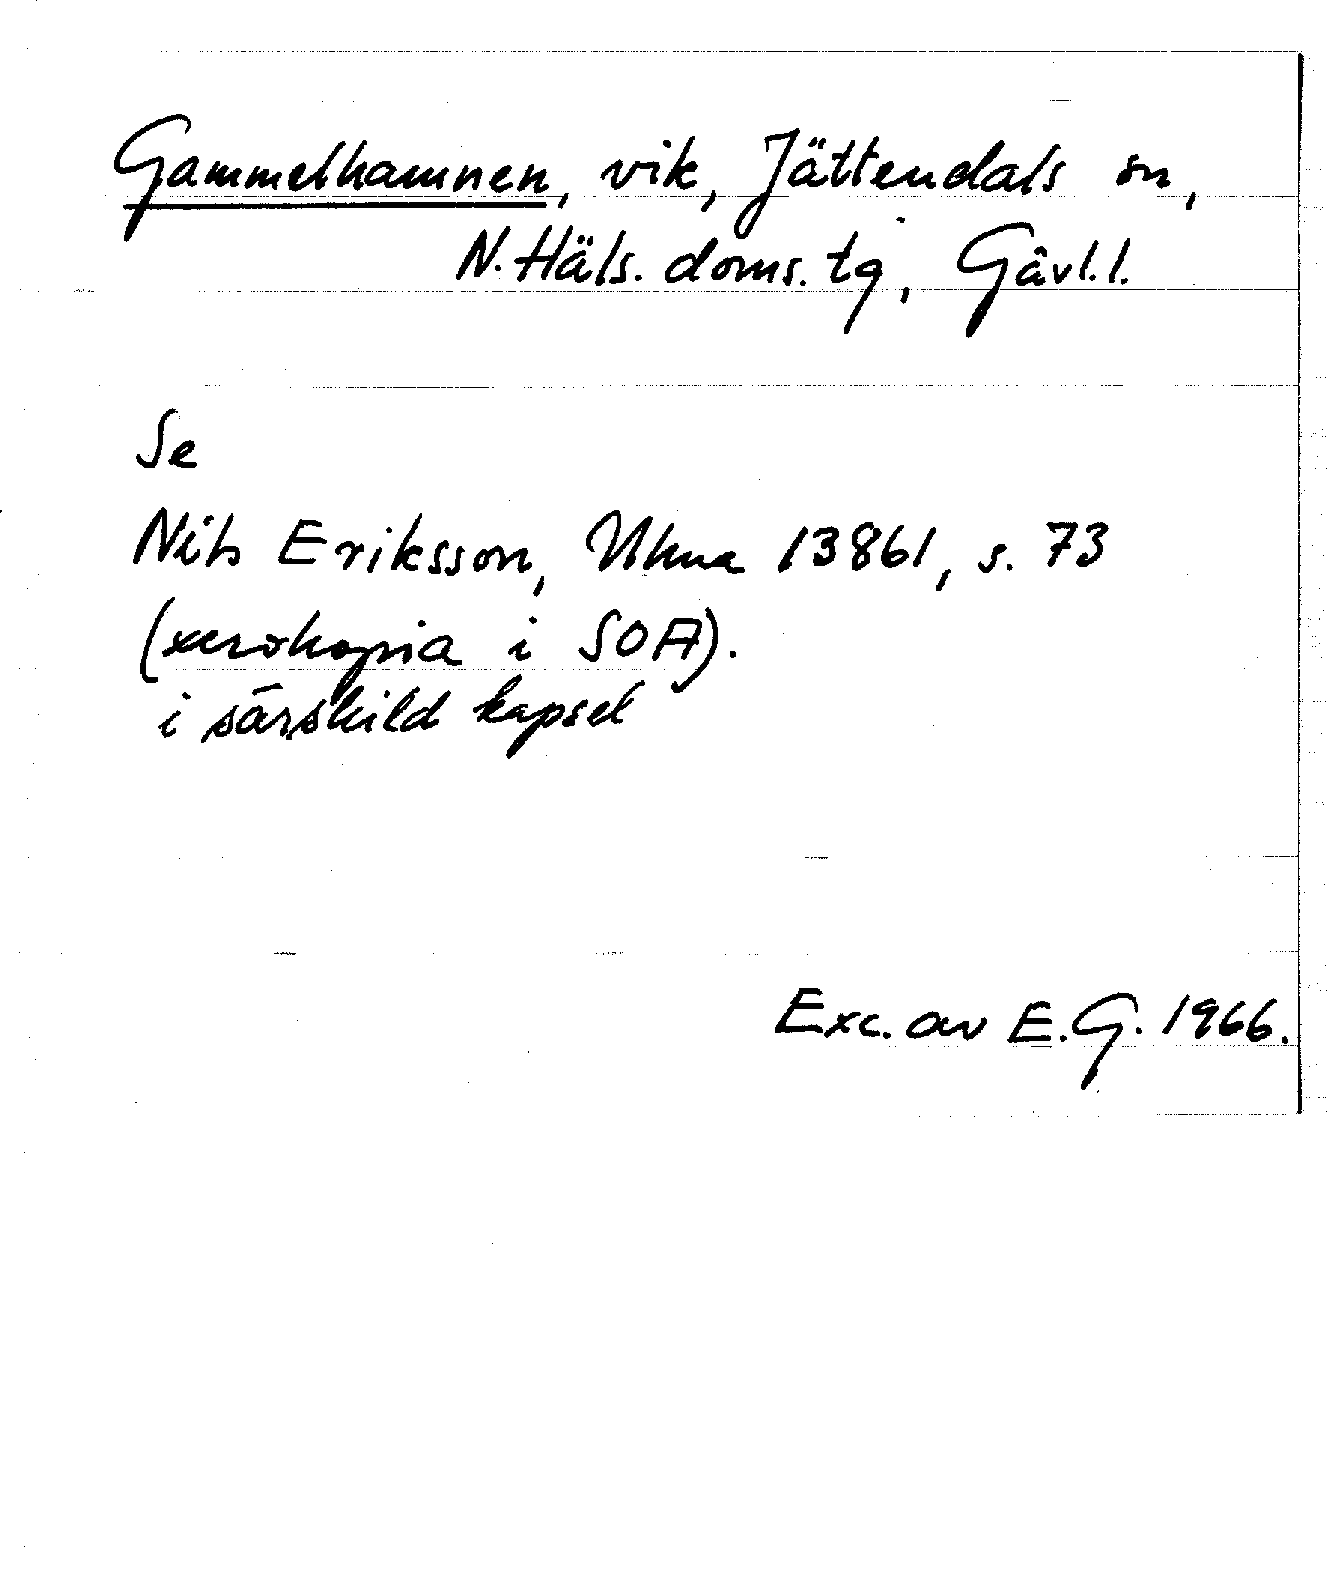 Gammelhamnen, vik, Jättendals sn,
N. Häls. doms. tg, Gävl. l.
Se
Nils Eriksson, Ulma 13861, s. 73
(xerokopia i SOA).
i särskild kapsel
Exc. av E.G. 1966.